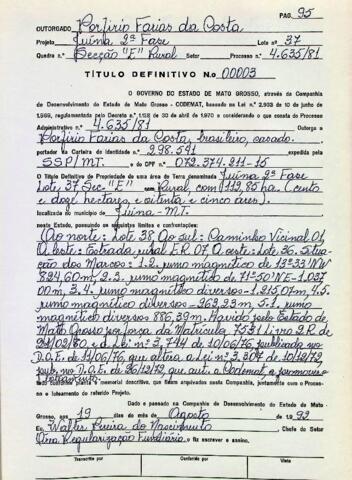 PAG. 95
OUTORGADO Porfirio Farias da Costa
Projeto Juína 2ª Fase Lote nº 37
Quadra nº Secção "E" Rural Setor Processo nº 4.635/81
TÍTULO DEFINITIVO No 00003
O GOVERNO DO ESTADO DE MATO GROSSO, através da Companhia
de Desenvolvimento do Estado de Mato Grosso - CODEMAT, baseado na Lei nº 2.933 de 10 de junho de
1969, regulamentada pelo Decreto nº 1.158 de 30 de abril de 1970 e considerando o que consta do Processo
Administrativo nº 4.635/81 Outorga a
Porfirio Farias da Costa, brasileiro, casado.
portador da Carteira de Identidade nº 298.591 expedida pela
SSP/MT. e do CPF nº 072.374.211-15
O Título Definitivo de Propriedade de uma área de Terra denominada Juína 2ª Fase
Lote, 37 Sec "E" Rural, com 112,85 ha (cento
e doze hectares, e oitenta e cinco ares).
localizada no município de Juína - MT.
neste Estado, possuindo os seguintes limites e confrontações:
(Ao norte: Lote 38, Ao sul: Caminho Vicinal 01,
A leste: Estrada rural ER.07, A oeste: Lote 36. Situa-
ção dos Marcos: 1.2. rumo magnético de
824,60m, 2.3. rumo magnético de 71º50'NE-1.037
00m, 3.4. rumo magnético diversos -1.215,07m, 4.5.
rumo magnético diversos -262,33m 5.1. rumo
magnético diversos 886,39m. Havido pelo Estado de
Mato Grosso por força da Matrícula 7531 Livro 2.R de
/02/80 e d. Lei nº 3.744 de 10/06/76, publicada no
D.O.E. de 11/06/76, que altera a Lei nº 3.307 de 10/12/72
pub. no D.O.E. de 26/12/72, que aut. a Codemat a promover o
loteamento
tudo conforme planta e memorial descritivo, que ficam arquivados nesta Companhia, juntamente com o Processo
e o loteamento do referido Projeto.
Dado e passado na Companhia de Desenvolvimento do Estado de Mato
Grosso, aos 19 dias do mês de Agosto de 1.992
Eu, Walter Pereira do Nascimento Chefe do Setor
Regularização Fundiária. o fiz escrever e assino.
Transcrito por Conferido por Visto